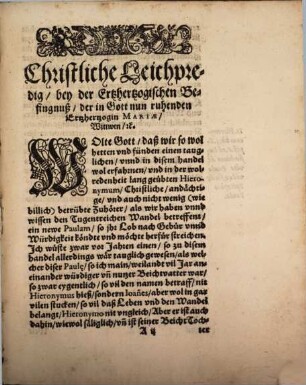 Christliche Leichpre-
dig / bey der Ertzhertzogischen Be-
singnuß / der in Gott nun ruhenden
Ertzhertzogin MARIÆ /
Wittwen / ꝛc.
WOlte Gott / daß wir so wol
hetten vnd fünden einen taug-
lichen / vnnd in disem handel
wol erfahrnen / vnd in der wol
redenheit lang geübten Hiero-
nymum / Christliche / andächti-
ge / vnd auch nicht wenig (wie
billich) betrübte Zuhörer / als wir haben vnnd
wissen den Tugentreichen Wandel betreffent /
ein newe Paulam / so jhr Lob nach Gebür vnnd
Würdigkeit köndte vnd möchte herfür streichen.
Ich wuste zwar vor Jaren einen / so zu disem
handel allerdings wär tauglich gewesen / als wel-
cher diser Paulę / so ich main / weilandt vil Jar an-
einander würdiger vñ nutzer Beichtvatter war /
so zwar eygentlich / so vil den namen betraff / nit
Hieronymus hieß / sondern Ioañes / aber wol in gar
vilen stucken / so vil daß Leben vnd den Wandel
belangt / Hieronymo nit vngleich / Aber er ist auch
dahin / wiewol säliglich / vñ ist seiner Beicht Toch-
A ij
ter